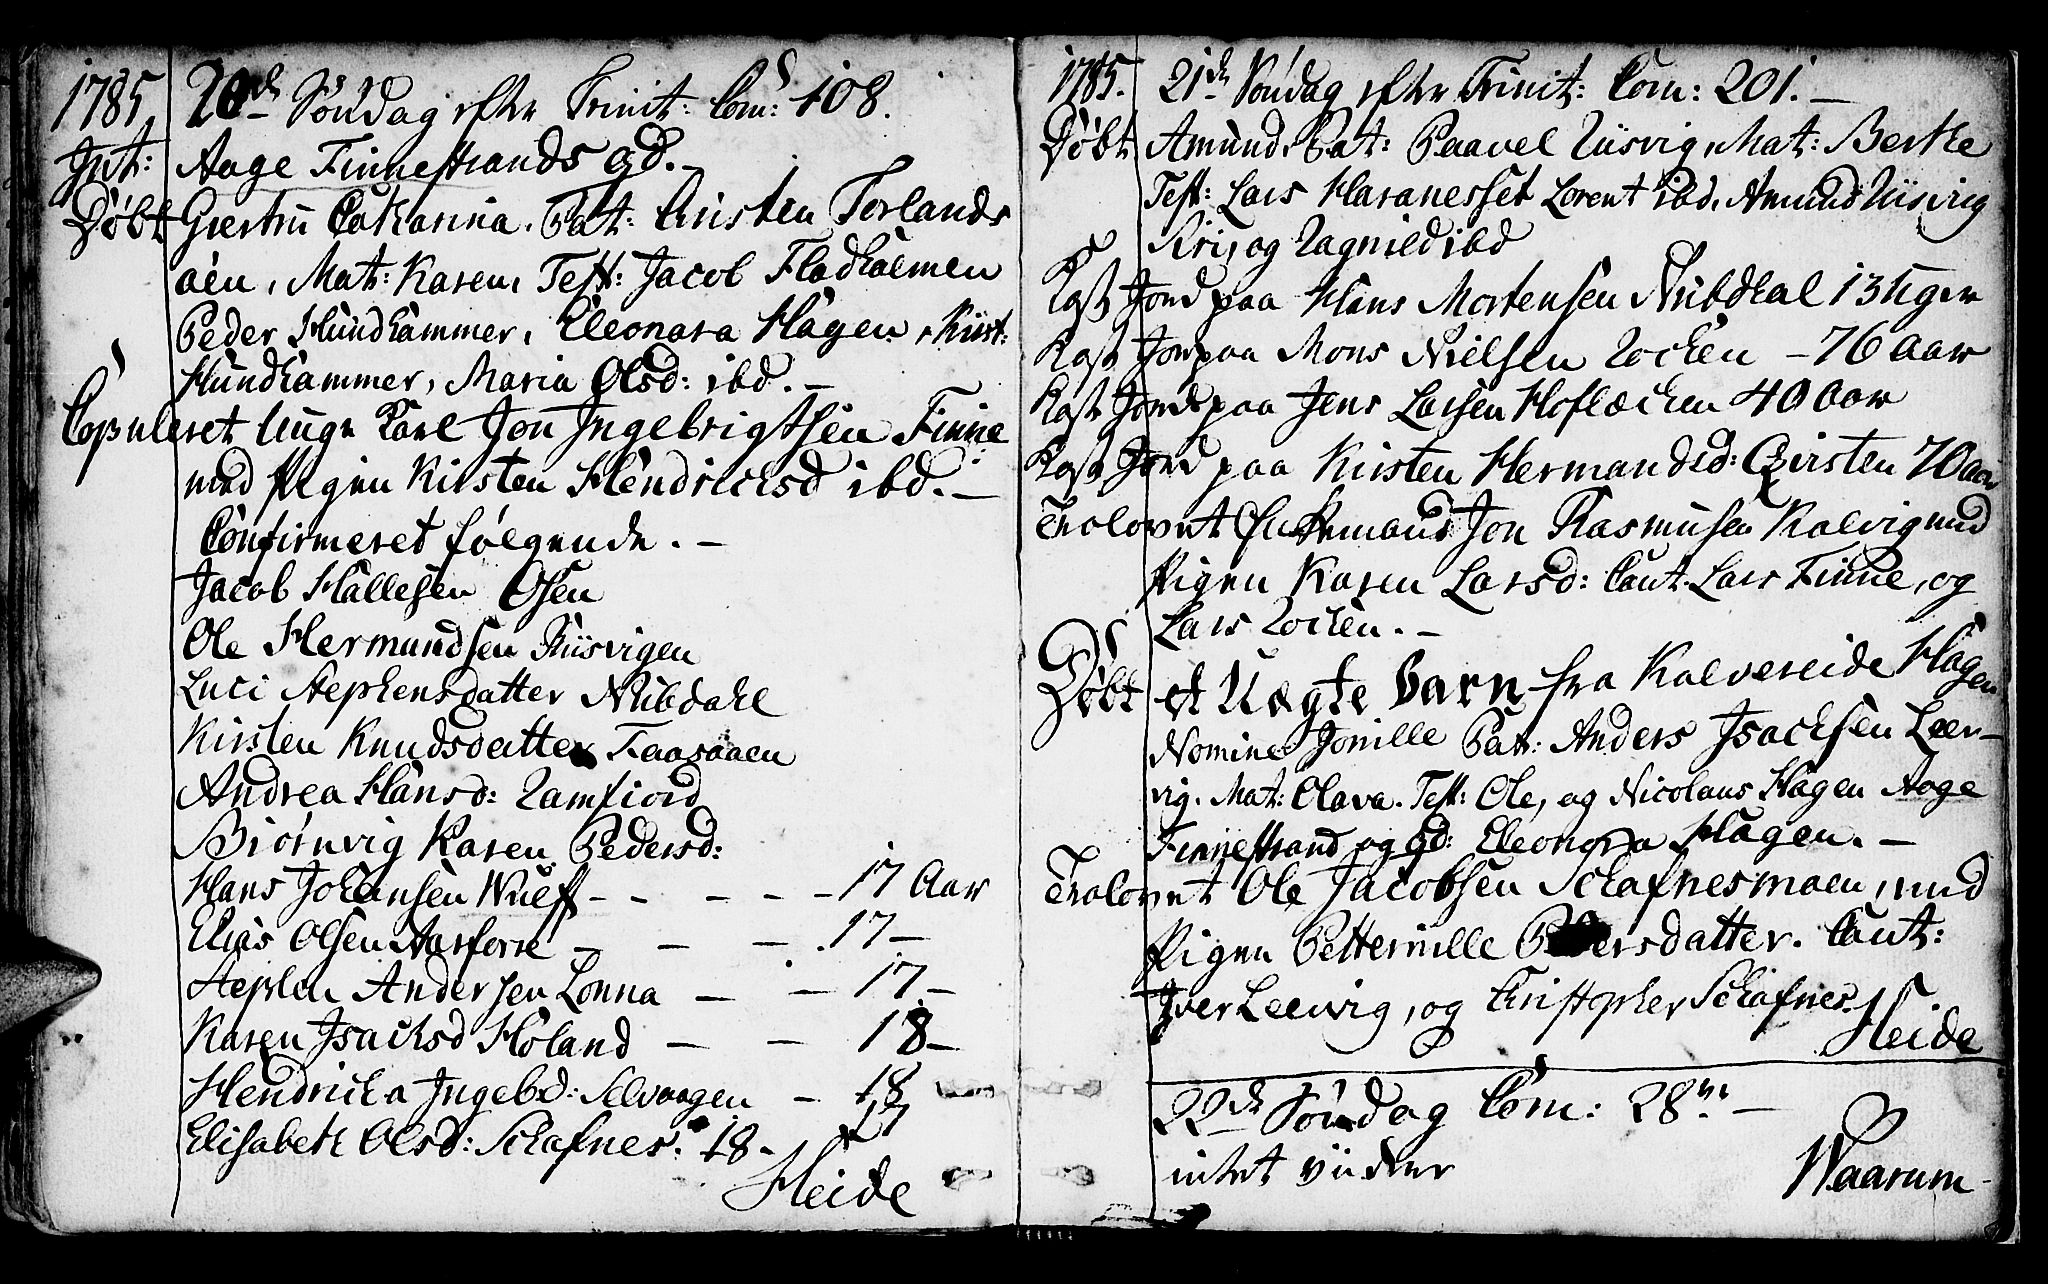 1785 20de Søndag efter Trinit: Com: 108.
Int: Aage Finnestrands gd. –
Døbt Giertru Catharina. Pat: Christen Torlands
øen, Mat: Karen, Test: Jacob Fladholmen
Peder Hundhammer, Eleonara Hagen, Kirst:
Hundhammer, Maria Olsd: ibd. –
Copuleret Unge Karl Jon Ingebrigtsen Finne
med Pigen Kirsten Hendrichsd ibd. –
Confirmeret følgende. –
Jacob Hallesen Osen
Ole Hermundsen Riisvigen
Luci Stephensdatter Nubdahl
Kirsten Knudsdatter Faasaaen
Andrea Hansd: Ramfiord
Biørnvig Karen Pedersd:
Hans Johansen Wueff - - - - - 17 Aar
Elias Olsen Aarforre – – – 17 –
Stephen Andersen Lonna – – 17 –
Karen Isachsd Høland – – 18 –
Hendricha Ingebd: Selvaagen – 18
Elisabeth Olsd: Schafnes. 18 - 17
Heide
1785. 21de Søndag efter Trinit: Com: 201. –
Døbt Amund, Pat: Paavel Riisvig, Mat: Berthe
Test: Lars Haranesset Lorent ibd. Amund Riisvig
Siri, og Ragnild ibd
Kast Jord paa Hans Mortensen Nubdhal 13 Uger
Kast Jord paa Mons Nielsen Rochen – 76 Aar
Kast Jord paa Jens Larsen Hoflæchen 40 Aar
Kast Jord paa Kirsten Hermandsd: Qvisten 70 aar
Trolovet Enkemand Jon Rasmusen Kalvig med
Pigen Karen Larsd: Caut. Lars Finne, og
Lars Rochen. –
Døbt et Uægte Barn fra Kalvereide Hagen
Nomine Jonille Pat: Anders Isachsen Leer-
vig. Mat: Olava. Test: Ole, og Nicolaus Hagen Aage
Finnestrand og gd: Eleonora Hagen. –
Trolovet Ole Jacobsen Schafnesmoen, med
Pigen Petternille Pedersdatter. Caut:
Iver Leervig, og Christopher Schafnes.
Heide
22de Søndag Com: 28
intet viidere
Waarum